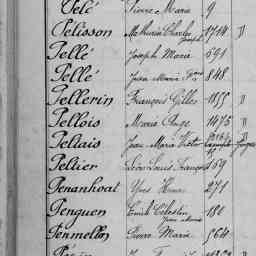 Pelé Pierre Marie 9
Pélisson Mathurin Charles Joseph 1714 D
Pellé Joseph Marie 591
Pellé Jean Marie 848
Pellerin François Gilles 1855 D
Pellois Marie Ange 1475 D
Peltais Jean Marie Victor
Peltier Louis François 159
Penanhoat Yves 271
Penguen Emile Célestin 180
Penmellen Pierre Marie 564